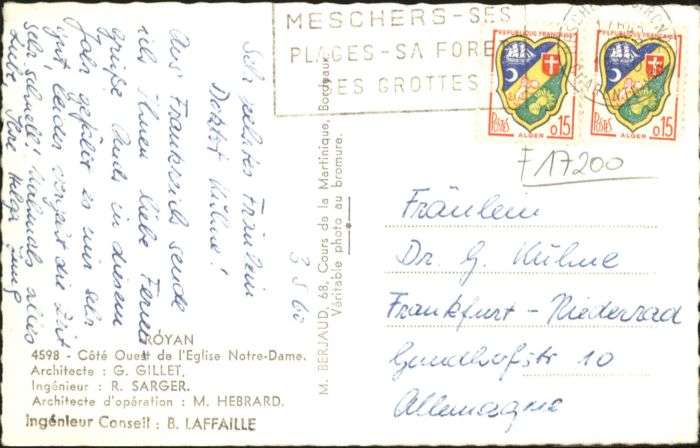 MESCHERS-SES
PLAGES-SA FORE
SES GROTTES
REPUBLIQUE FRANÇAISE
Postes 0,15
ALGER
REPUBLIQUE FRANÇAISE
Postes 0,15
ALGER
F 17200
Sehr geehrtes Fräulein
Doktor Kühne!
Aus Frankreich sende
ich Ihnen liebe Ferien
grüße. Auch in diesem
Jahr gefällt es mir sehr
gut, leider vergeht die Zeit
sehr schnell! Nochmals alles
Liebe Ihre Helga
3.8.60
M. BERJAUD, 68, Cours de la Martinique, Bordeaux
Véritable photo au bromure.
Fräulein
Dr. G. Kühne
Frankfurt - Niederrad
Gundhofstr 10
Allemagne
ROYAN
4598 - Côté Ouest de l'Eglise Notre-Dame.
Architecte : G. GILLET,
Ingénieur : R. SARGER.
Architecte d'opération : M. HEBRARD.
Ingénieur Conseil : B. LAFFAILLE